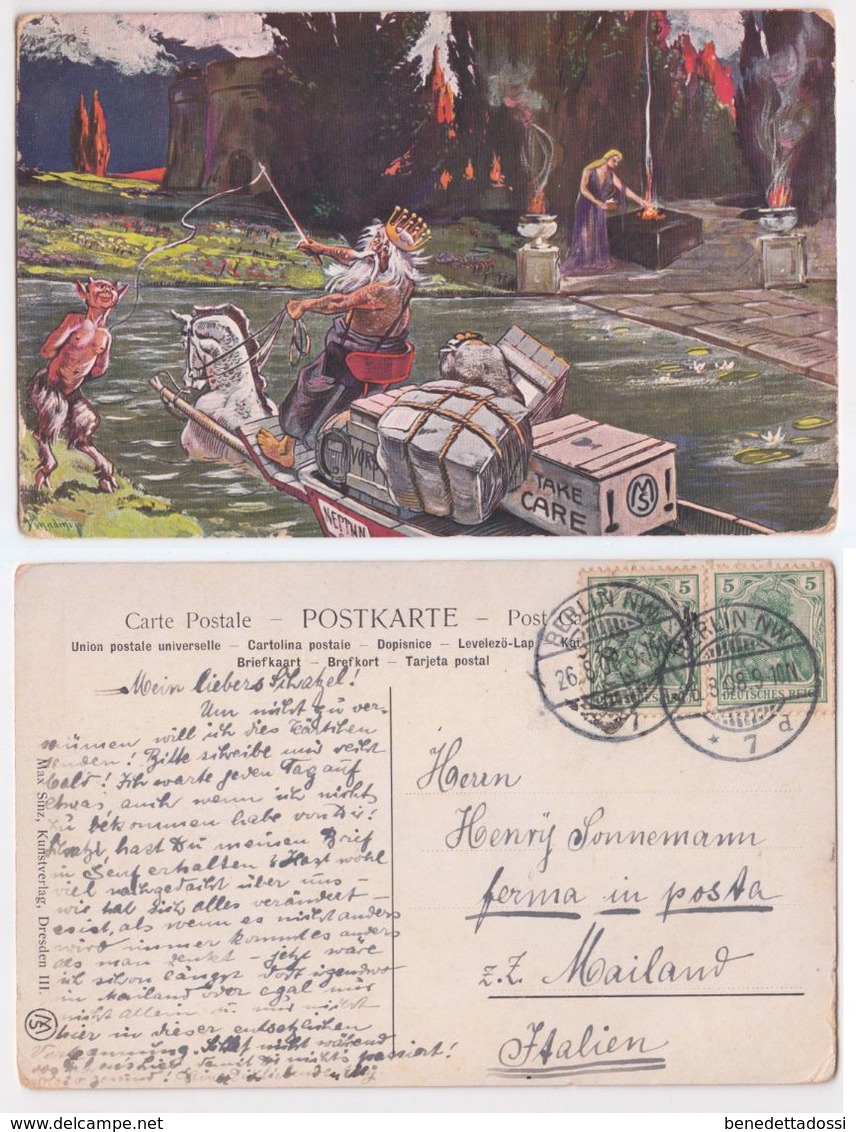 VORS
TAKE
CARE
!
MS
!
NEPTUN
Carte Postale – POSTKARTE – Post
Union postale universelle – Cartolina postale – Dopisnice – Levelezö-Lap
Briefkaart – Brefkort – Tarjeta postal
5
5
DEUTSCHES REICH
BERLIN NW
26.8.08.9-10N.
BERLIN NW
8.08.9-10N.
* 7 d
Mein liebers Schatzel!
Um nicht zu ver-
säumen will ich dies Kärtchen
senden! Bitte schreibe und recht
bald! Ich warte jeden Tag auf
etwas auch wenn ich nichts
zu bekommen habe von Dir!
Schatzl, hast Du meinen Brief
in Genf erhalten & Hast wohl
viel nachgedacht über uns –
wie hat sich alles verändert –
es ist, als wenn es nicht anders
wird immer kommt es anders
als man denkt – jetzt wäre
ich schon längst dort irgendwo
in Mailand oder egal nur
nicht allein u. nur nicht
hier in dieser entsetzlichen
Verbannung. nicht während
damit Dir nichts passiert!
Herrn
Henry Sonnemann
ferma in posta
z.Z. Mailand
Italien
Max Sinz, Kunstverlag, Dresden III.
MS
www.delcampe.net
benedettadossi